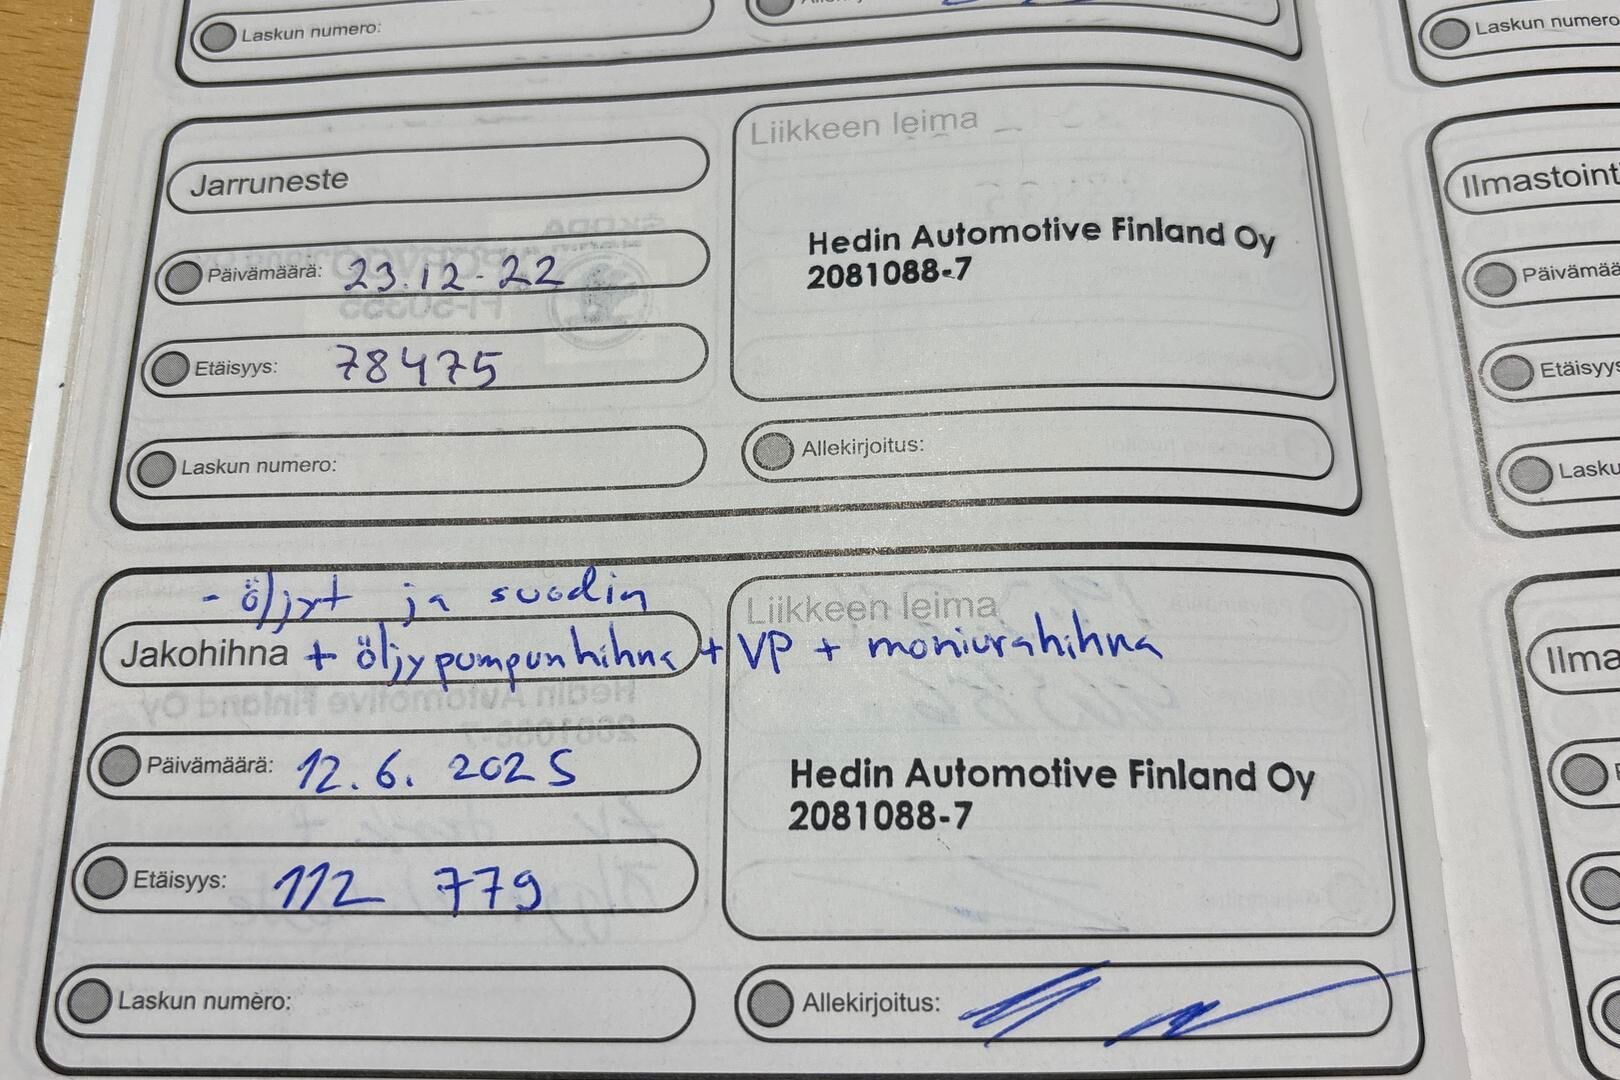 Laskun numero:
Jarruneste
Päivämäärä: 23.12-22
Etäisyys: 78475
Laskun numero:
Liikkeen leima
Hedin Automotive Finland Oy
2081088-7
Allekirjoitus:
- öljyt ja suodin
Jakohihna + öljypumpunhihna + VP + moniurahihna
Päivämäärä: 12.6. 2025
Etäisyys: 112 779
Laskun numero:
Liikkeen leima
Hedin Automotive Finland Oy
2081088-7
Allekirjoitus:
Laskun numero
Ilmastoint
Päivämää
Etäisyys
Lasku
Ilma